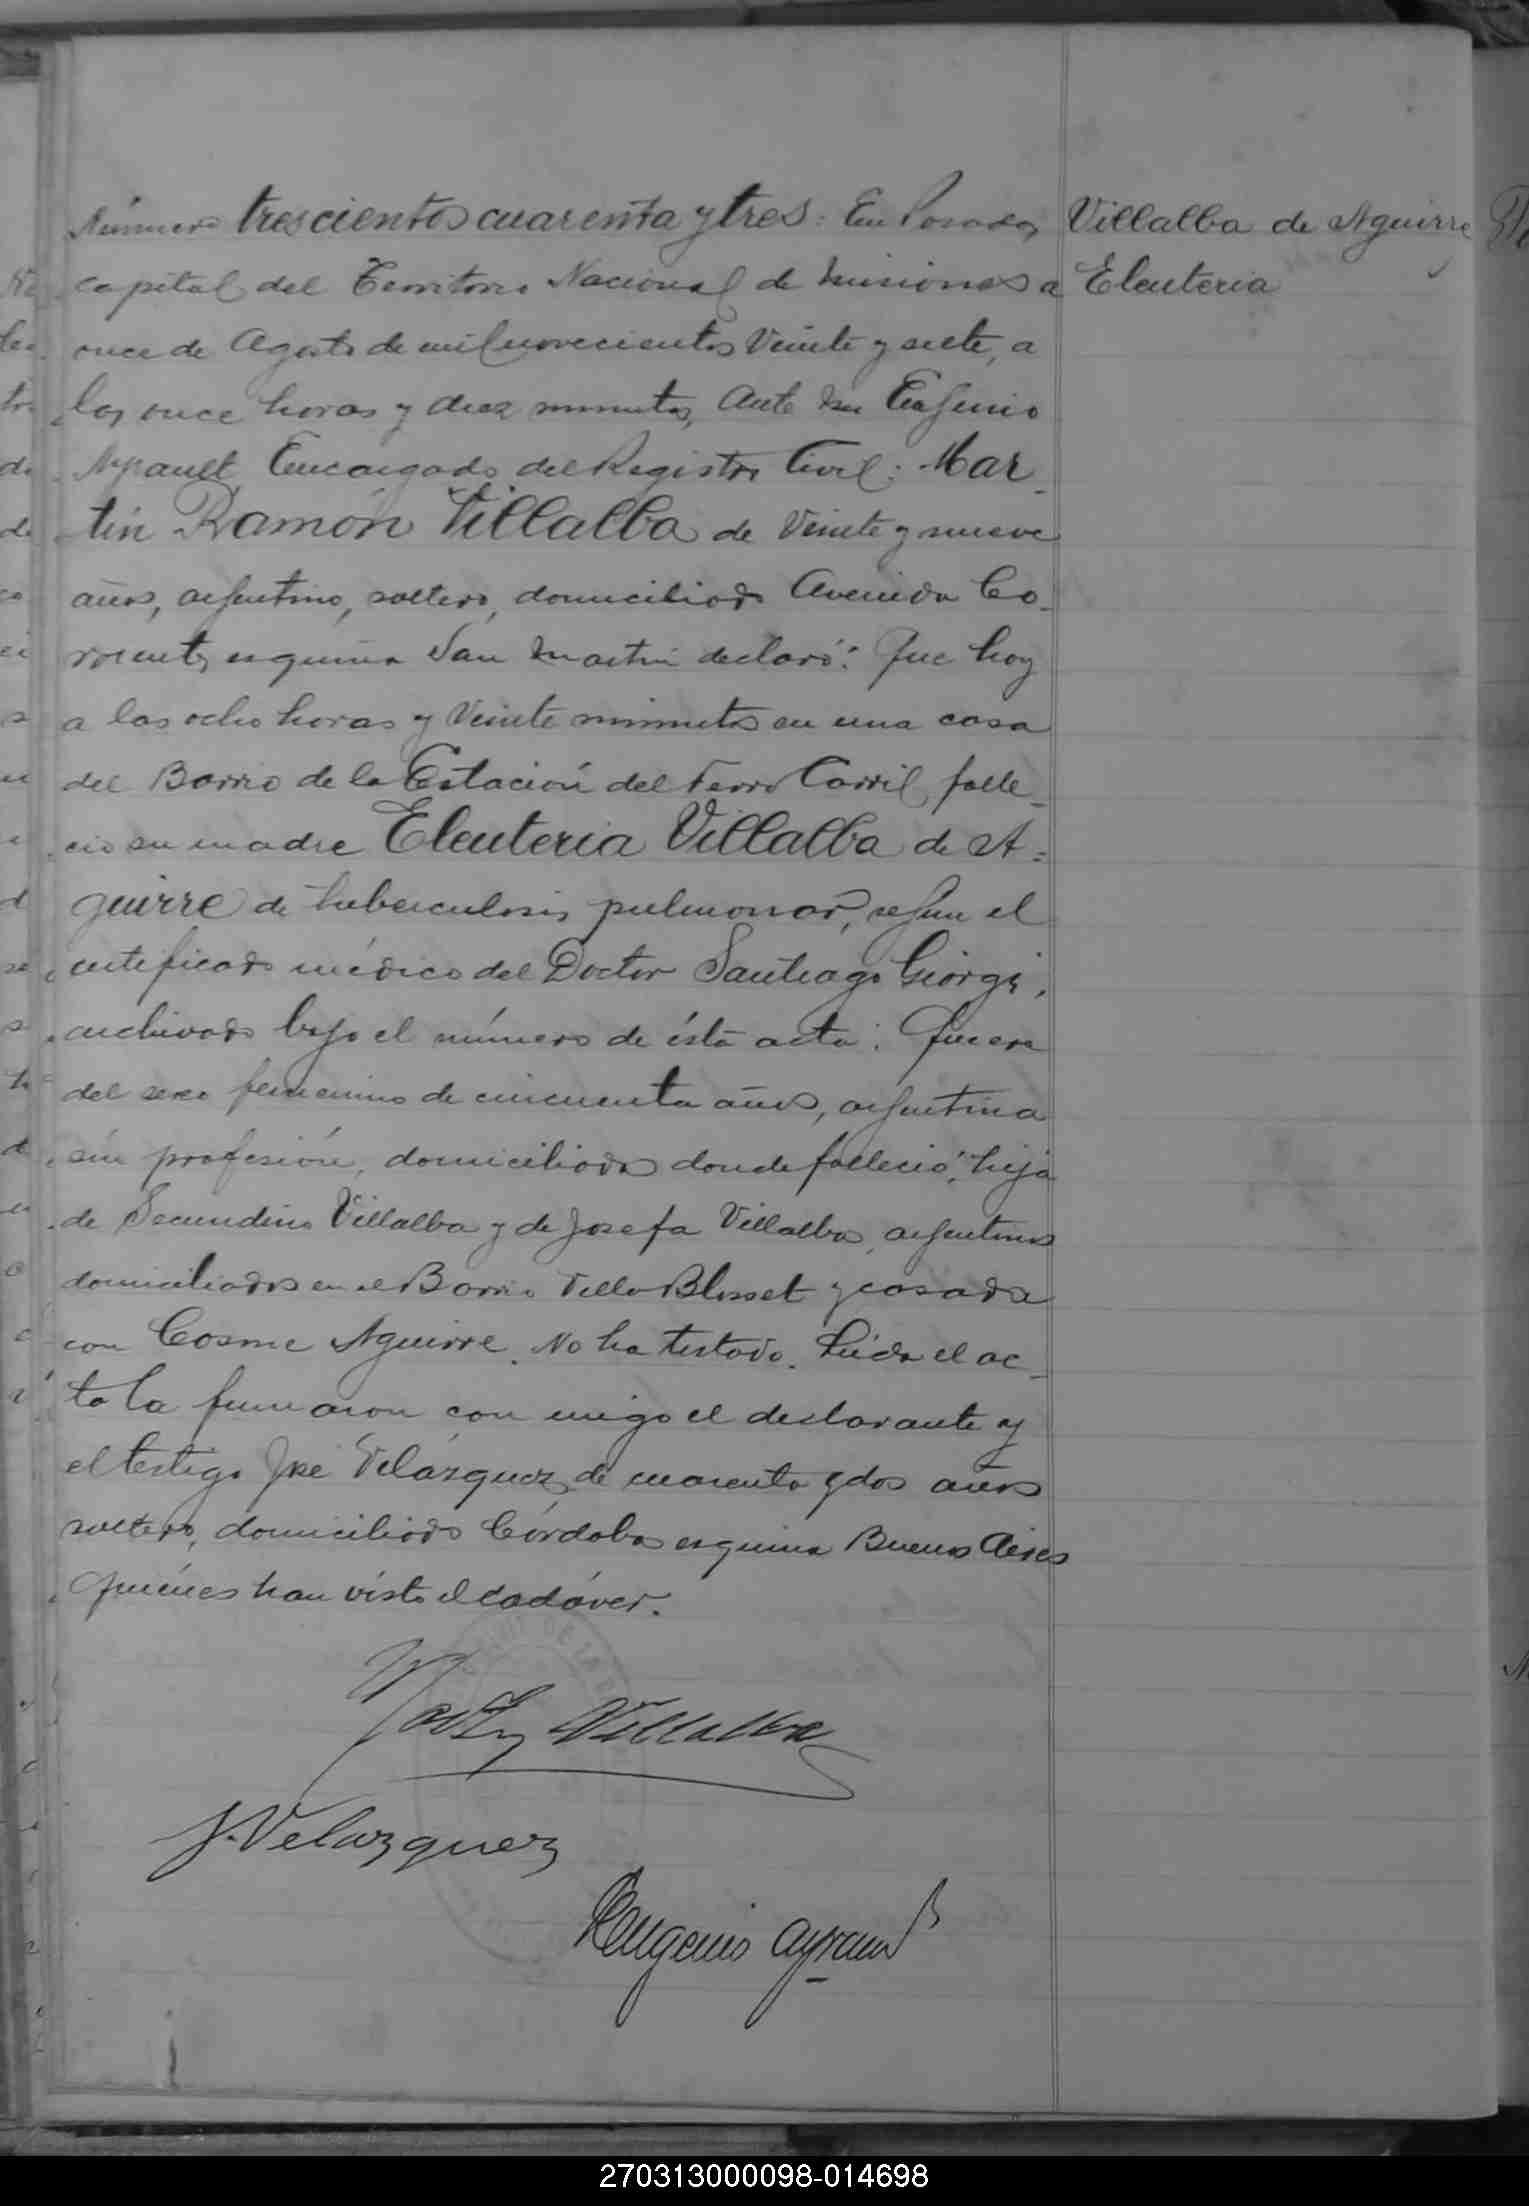 Número trescientos cuarenta y tres: En Posadas,
capital del Territorio Nacional de Misiones a
once de Agosto de mil novecientos veinte y siete, a
las once horas y diez minutos, Ante mi Eugenio
Encargado del Registro Civil: Mar-
tín Ramón Villalba de veinte y nueve
años, argentino, soltero, domiciliado Avenida Co-
rrientes esquina San Martin declaró: Que hoy
a las ocho horas y veinte minutos en una casa
del Barrio de la Estación del Ferro Carril falle-
ció su madre Eleuteria Villalba de A=
guirre de tuberculosis pulmonar, segun el
certificado médico del Doctor Santiago Giorgi,
archivado bajo el número de ésta acta: Que era
del sexo femenino de cincuenta años, argentina
sin profesión, domiciliada donde falleció, hija
de Secundino Villalba y de Josefa Villalba, argentinos
domiciliados en el Barrio Villa Blosset y casada
con Cosme Aguirre. No ha testado. Leída el ac-
ta la firmaron con migo el declarante y
el testigo José Velázquez de cuarenta y dos años
soltero, domiciliado Córdoba esquina Buenos Aires
quiénes han visto el cadáver.
Villalba de Aguirre
Eleuteria
Martin Villalba
J. Velazquez
Eugenio
270313000098-014698